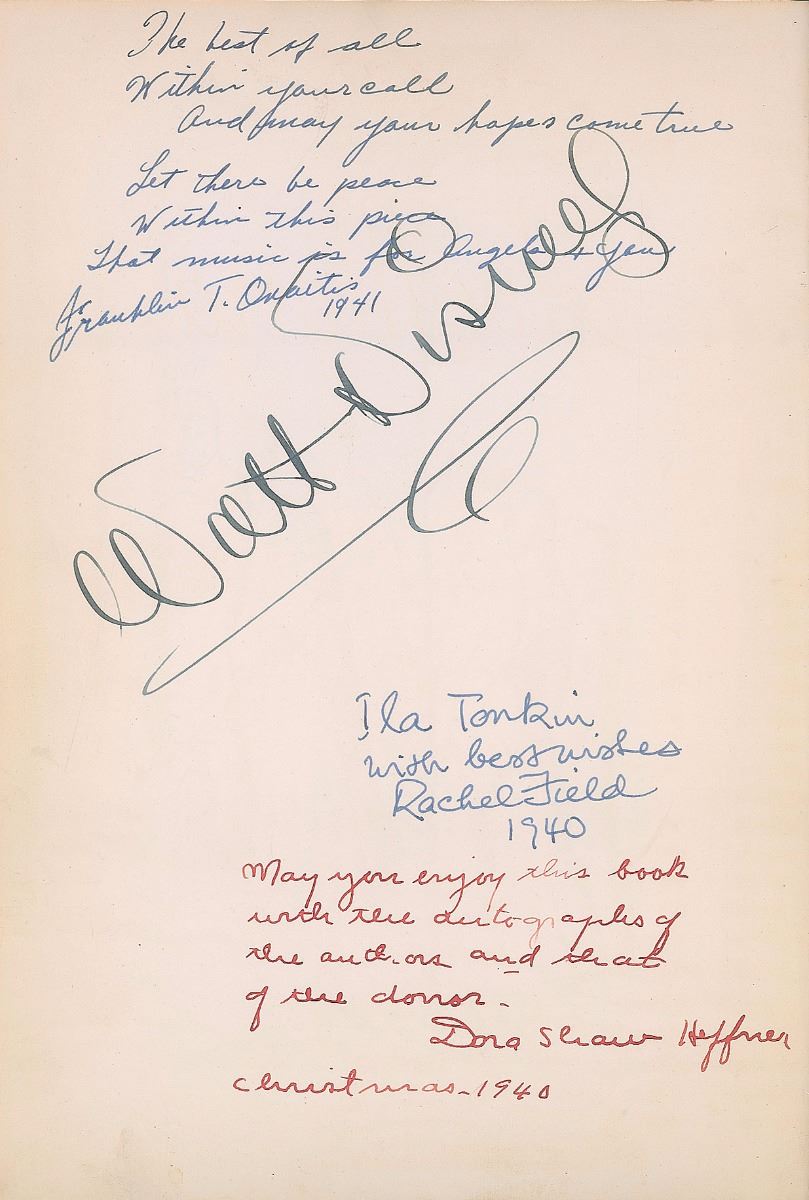 The best of all
Within your call
And may your hopes come true
Let there be peace
Within this piece
That music is for Angels & you
Franklin T.
1941
Walt Disney
Ila Tonkin
with best wishes
Rachel Field
1940
May you enjoy this book
with the autographs of
the authors and that
of the donor.
Dora Shaw Heffner
Christmas - 1940